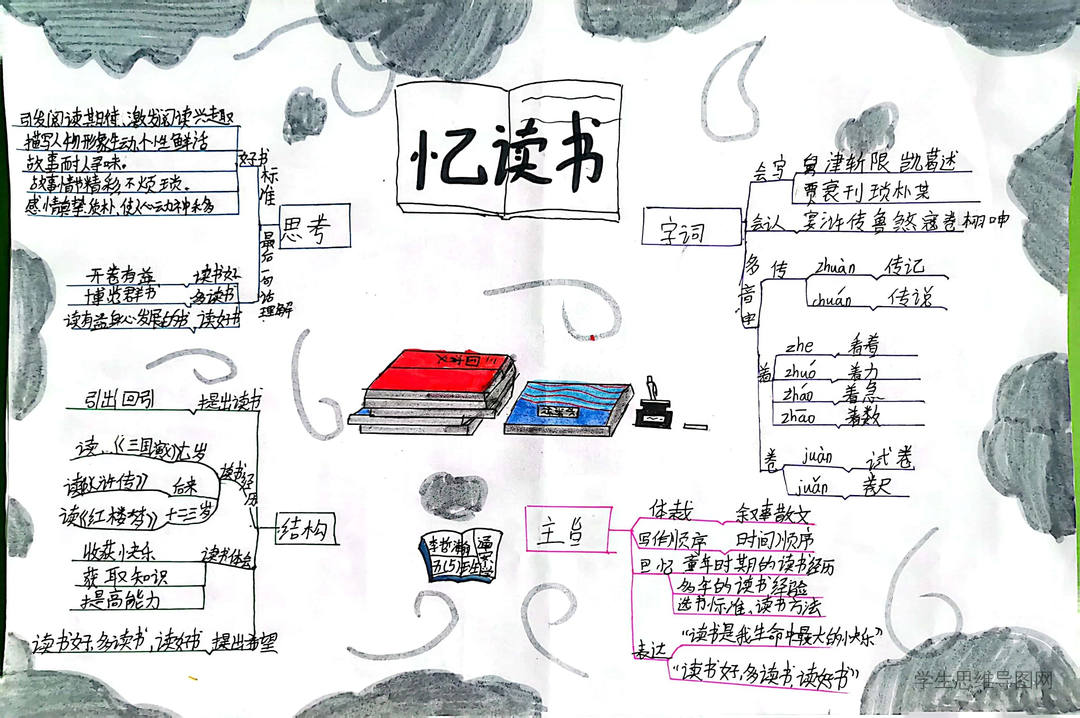 忆读书
引发阅读期待、激发阅读兴趣
描写人物形象生动、个性鲜活
故事耐人寻味。
故事情书精彩不烦琐。
感情真挚、质朴,使人心动神移
好书
标准
最后一句话
理解
思考
开卷有益
读书好
博览群书
多读书
读有益身心发展的书
读好书
字词
会写
津斩限 凯葛述
贾衰刊琐朴某
会认
宴浒传鲁煞寇卷栩呻
多音
传
zhuàn
传记
chuán
传说
着
zhe
看着
zhuó
着力
zháo
着急
zhāo
着数
卷
juàn
试卷
juǎn
卷尺
结构
引出回引
提出读书
读...《三国
岁
读《水浒传》
后来
读《红楼梦》
十二三岁
读书经历
收获小快乐
获取知识
提高能力
读书体会
读书好,多读书,读好书
提出希望
主旨
体裁
叙事散文
写作顺序
时间顺序
回忆
童年时期的读书经历
多年的读书经验
选书标准、读书方法
表达
“读书是我生命中最大的快乐”
“读书好,多读书,读好书”
三国演义
李哲瀚
五(5)班
学生思维导图网